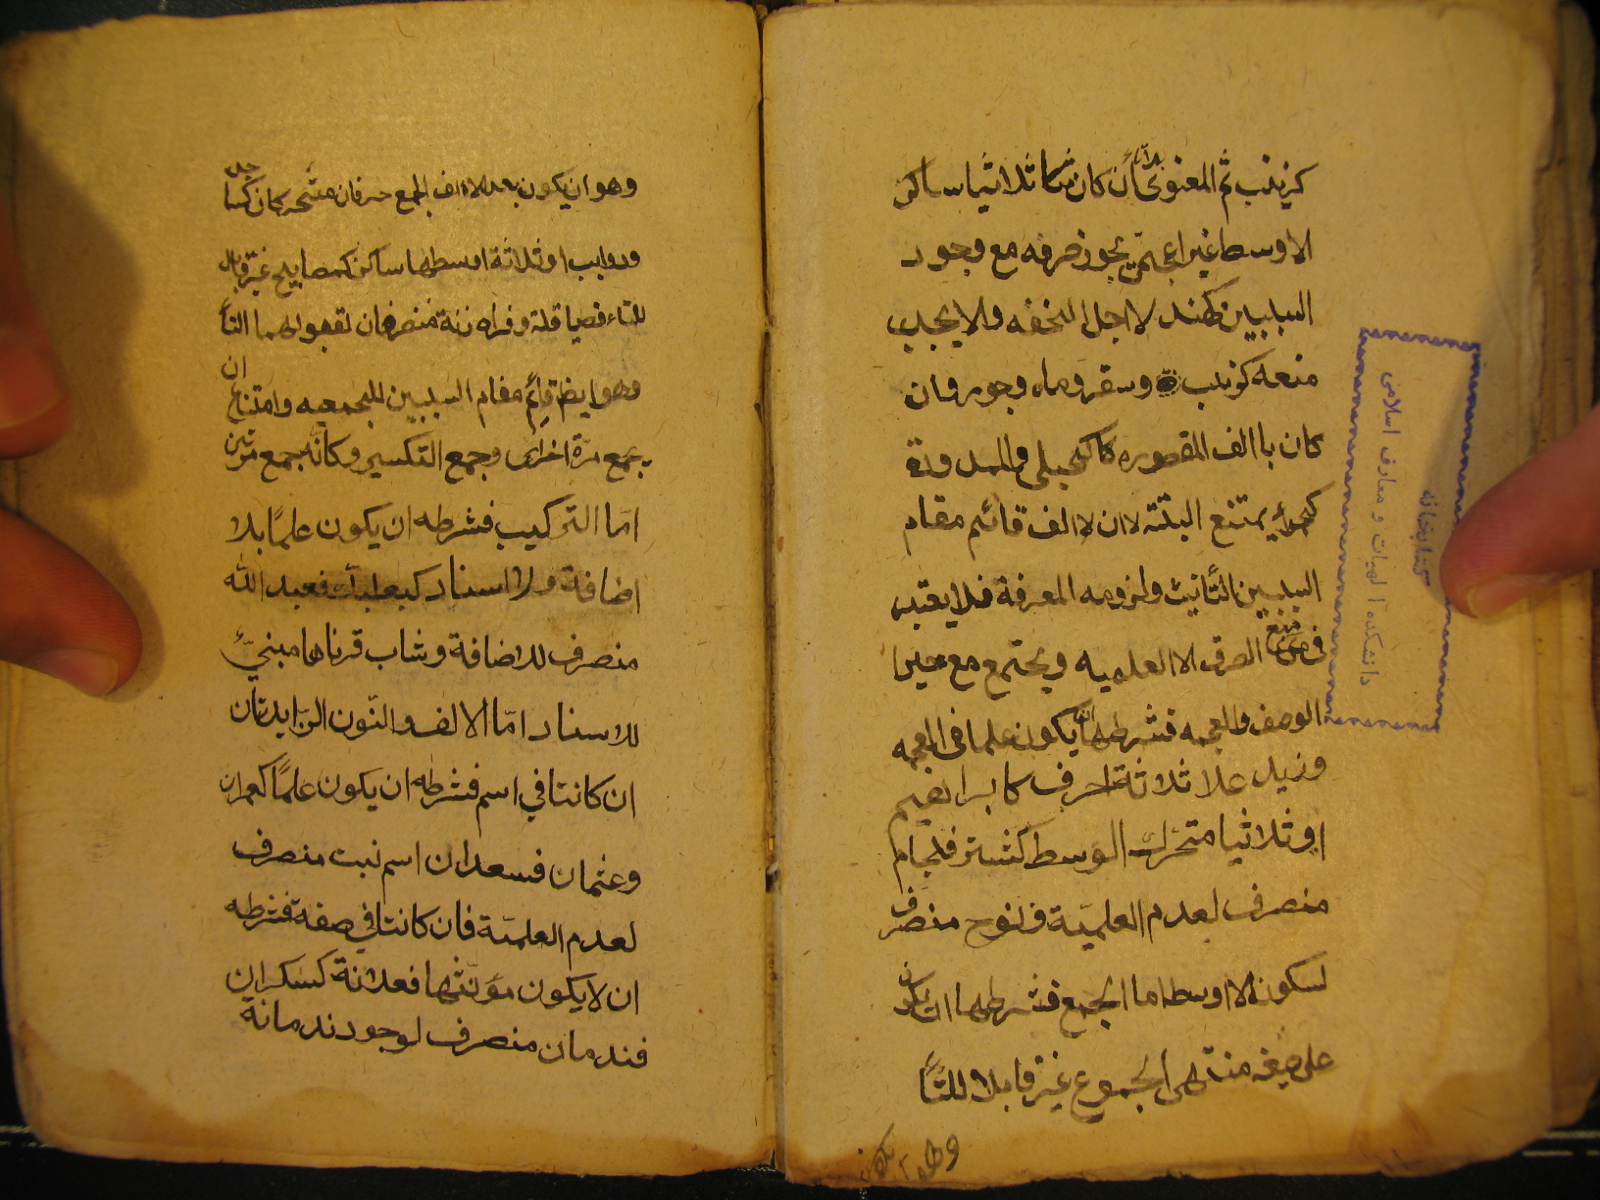 كزينب ثم المعنوي ان كان ثلاثيا ساكن
الاوسط غير اعجمي يجوز صرفه مع وجود
السببين كهند لاجل الخفه والا يجب
منعه كزينب وسقر وماه وجور وان
كان باالف المقصوره كحبلى والممدودة
كحمراء يمتنع البتته لان الالف قائم مقام
السببين التانيث ولزومه المعرفة فلا يعتبر
في منع الصرف الا العلميه ويجتمع مع غير
الوصف والعجمه فشرطها ان يكون علما في العجمه
وزيد علا ثلاثة احرف كابراهيم
او ثلاثيا متحرك الوسط كشتر فلجام
منصرف لعدم العلميّة فنوح منصرف
لسكون الاوسط اما الجمع فشرطها ان يكون
على صيغه منتهى الجموع غير قابلا للتاً
وهو ان يكون
وهو ان يكون بعد الالف الجمع حرفان متحركان كمساجد
ودواب او ثلاثة اوسطها ساكن كمصابيح غير قابل
للتاء فصياقلة وفرازنة منصرفان لقبولهما التاً
وهو ايضا قائم مقام السببين للجمعيه وامتناع ان
يجمع مرّة اخرى وجمع التكسير وكانّه جمع مرتين
امّا التركيب فشرطه ان يكون علمًا بلا
اضافة ولا اسناد كبعلبك فعبد الله
منصرف للاضافة وشاب قرناها مبنيّ
للاسناد امّا الالف والنّون الزّايدتان
ان كانتا في اسم فشرطه ان يكون علمًا كعمران
وعثمان فسعدان اسم نبت منصرف
لعدم العلميّة فان كانتا في صفة فشرطه
ان لا يكون مؤنّثها فعلانة كسكران
فندمان منصرف لوجود ندمانة
كتابخانه
دانشكده الهيات و معارف اسلامى